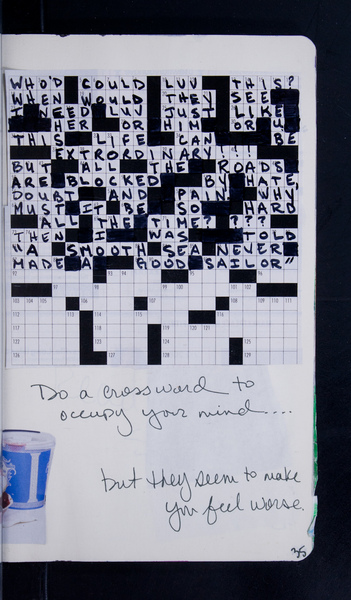 WHO'D COULD LUV THIS?
WHEN WOULD THEY SEE
I NEED LUV JUST LIKE
HER OR HIM OR U
THIS LIFE CAN BE
EXTRORDINARY!
BUT ALL THE ROADS
ARE BLOCKED BY HATE,
DOUBT AND PAIN. WHY
MUST IT BE SO HARD
ALL THE TIME? ? ? ?
THEN I WAS TOLD
"A SMOOTH SEA NEVER
MADE A GOOD SAILOR"
Do a crossword to
occupy your mind....
but they seem to make
you feel worse.